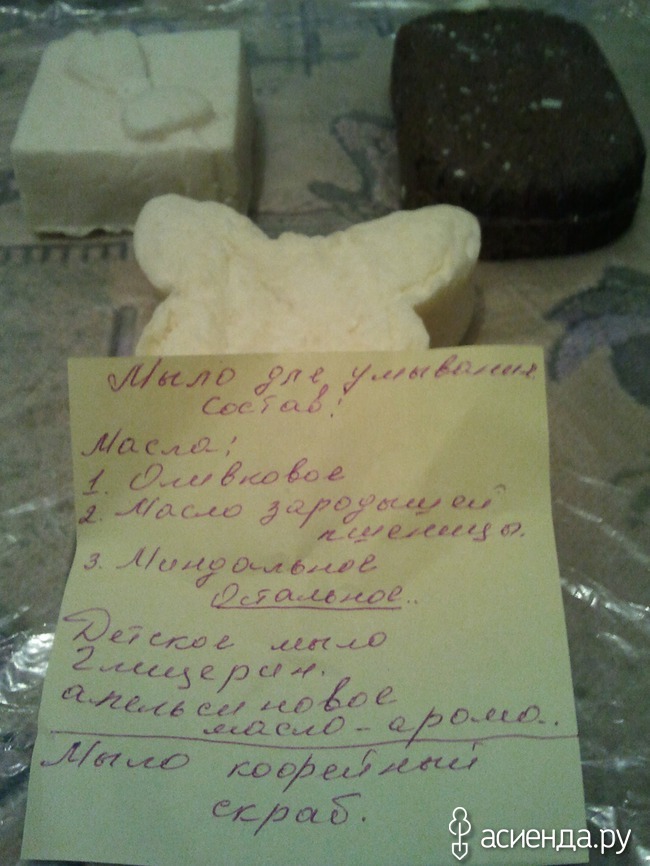 Мыло для умывания
состав:
Масла:
1. Оливковое
2. Масло зародышей
пшеницы.
3. Миндальное
Остальное..
Детское мыло
Глицерин.
апельсиновое
масло - арома..
Мыло кофейный
скраб.
асиенда.ру